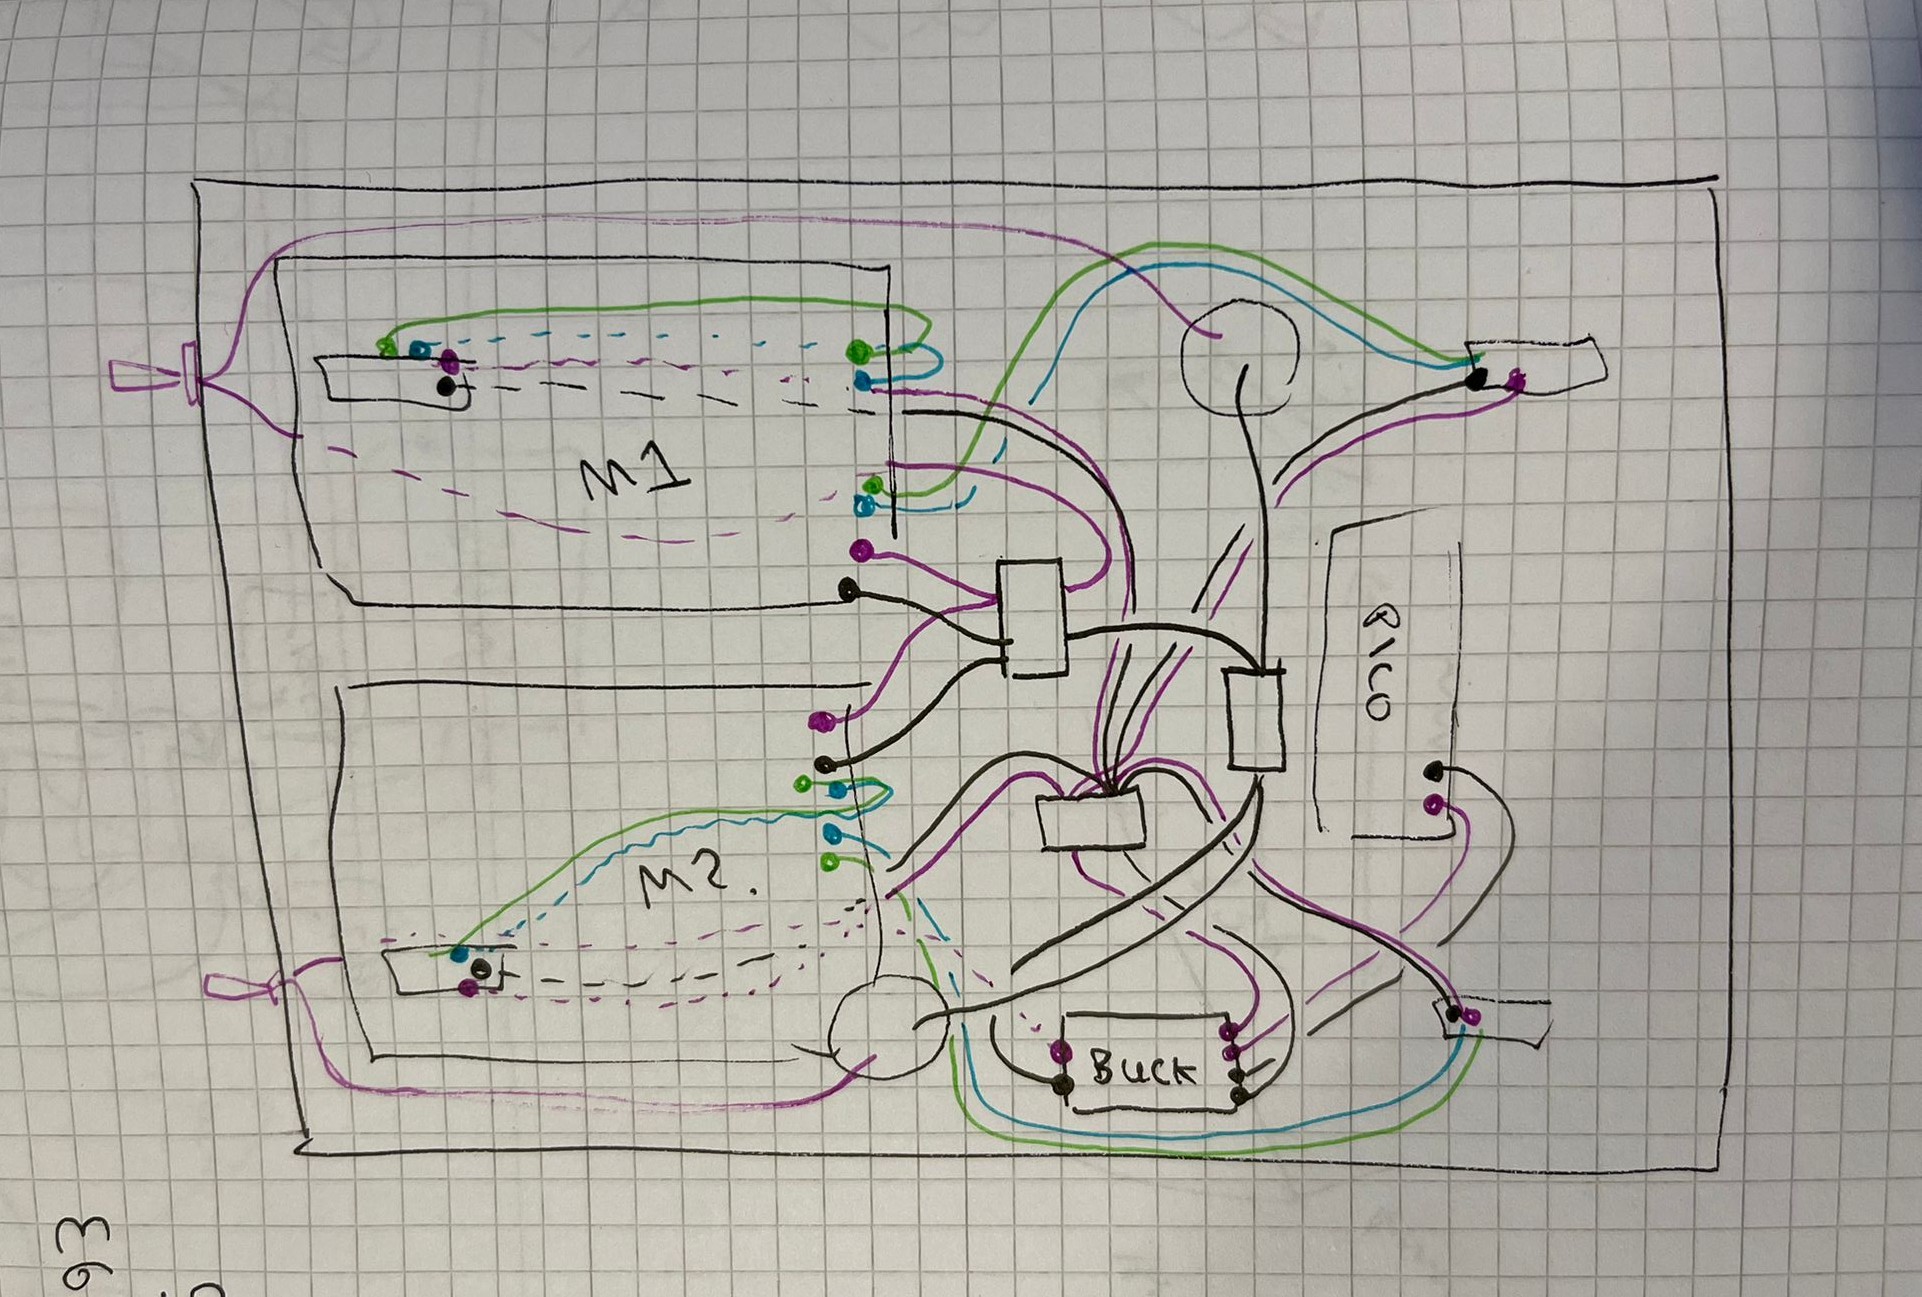 M1
PICO
M2.
Buck
93